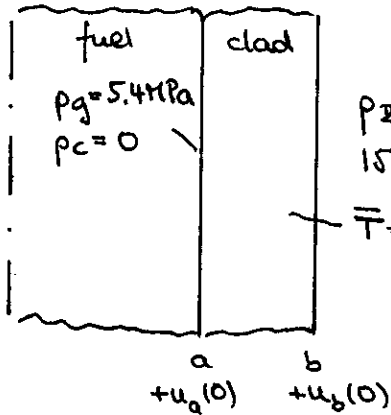 fuel clad
pg=5.4MPa
pc=0
15
T
a b
+uₐ(0) +u_b(0)